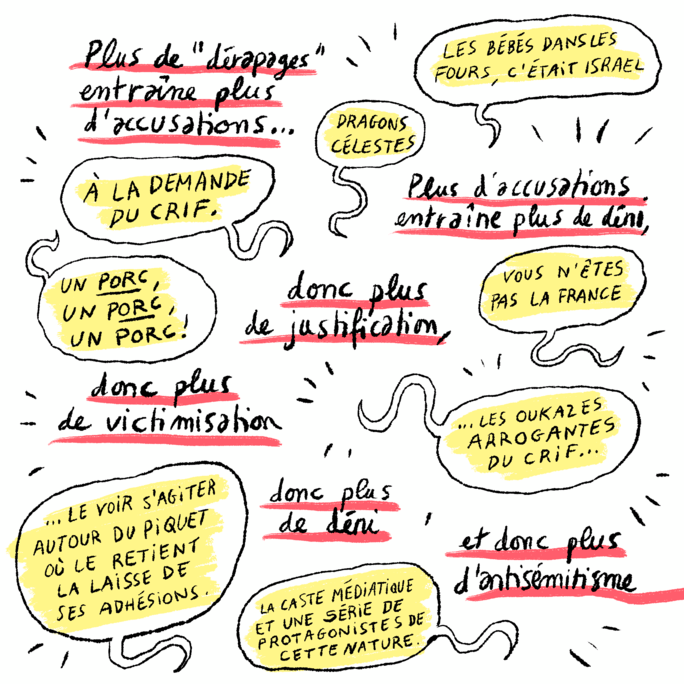 Plus de "dérapages"
entraîne plus
d'accusations...
LES BÉBÉS DANS LES
FOURS, C'ÉTAIT ISRAEL
DRAGONS
CÉLESTES
À LA DEMANDE
DU CRIF.
Plus d'accusations
entraîne plus de déni,
UN PORC,
UN PORC,
UN PORC!
VOUS N'ÊTES
PAS LA FRANCE
donc plus
de justification,
donc plus
de victimisation
...LES OUKAZES
ARROGANTES
DU CRIF...
...LE VOIR S'AGITER
AUTOUR DU PIQUET
OÙ LE RETIENT
LA LAISSE DE
SES ADHÉSIONS.
donc plus
de déni
et donc plus
d'antisémitisme
LA CASTE MÉDIATIQUE
ET UNE SÉRIE DE
PROTAGONISTES DE
CETTE NATURE.